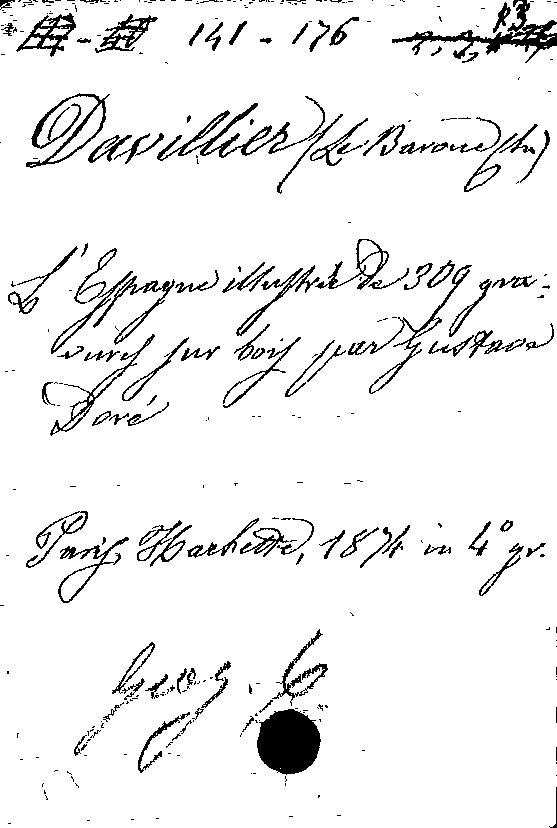 141 - 176
Davillier (Le Baron Ch)
L'Espagne illustrée de 309 gra-
vures sur bois par Gustave
Doré
Paris, Hachette, 1874 in 4° gr.
Geog.